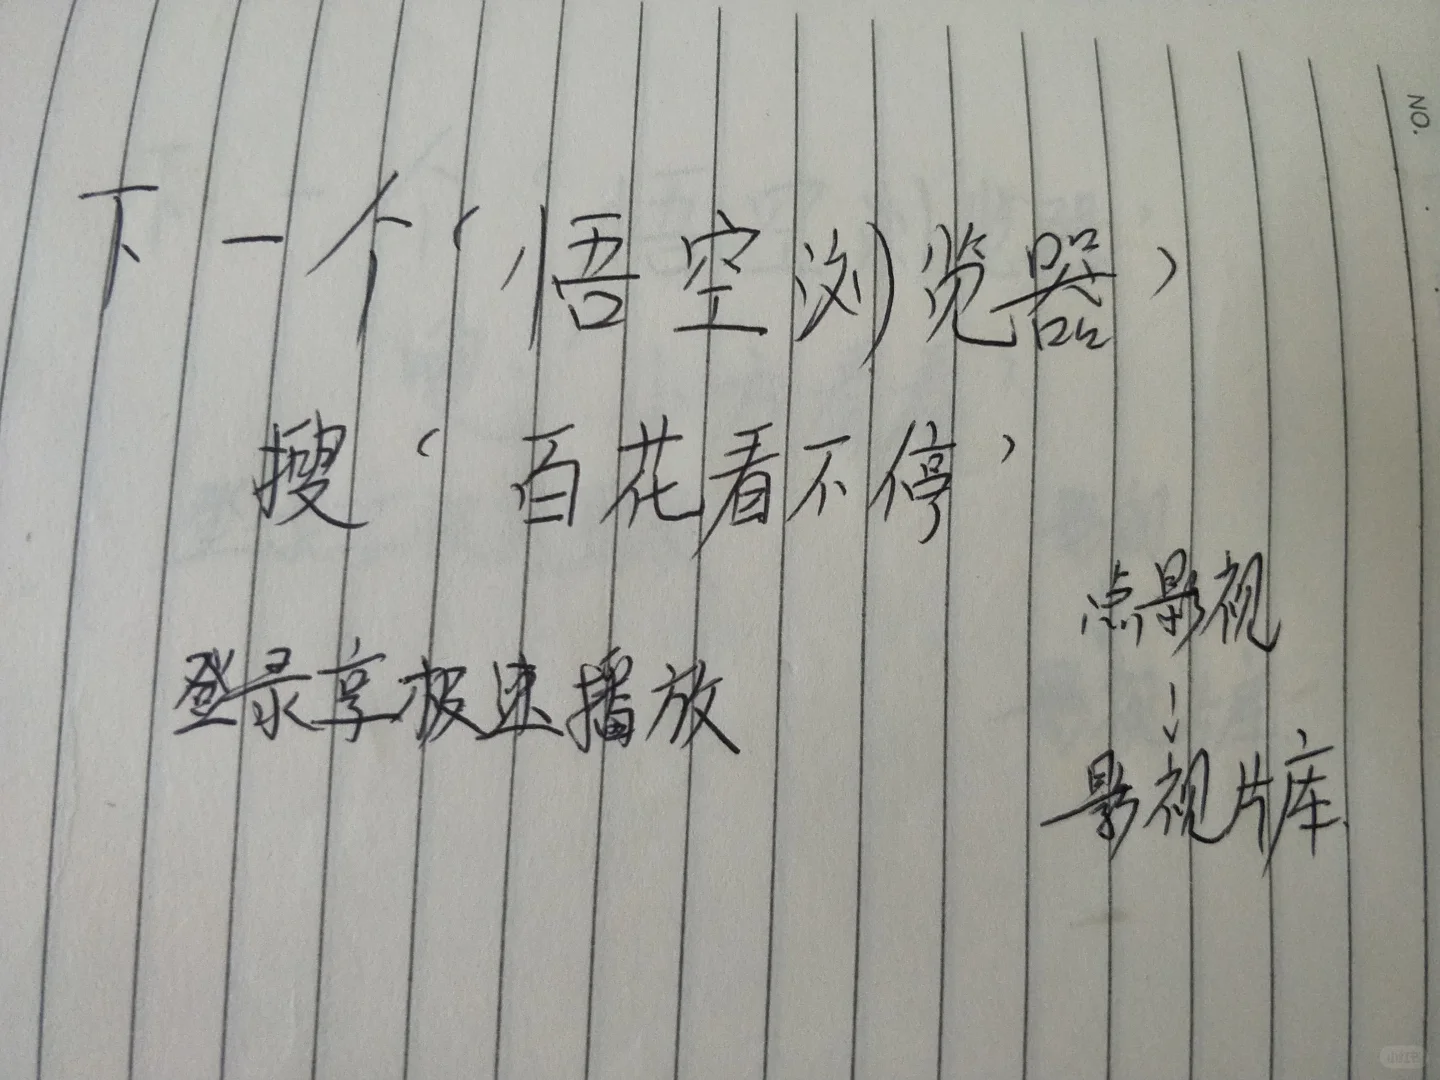 NO.
下一个‘悟空浏览器’
搜‘百花看不停’
点影视
↓
影视片库
登录享极速播放
小红书